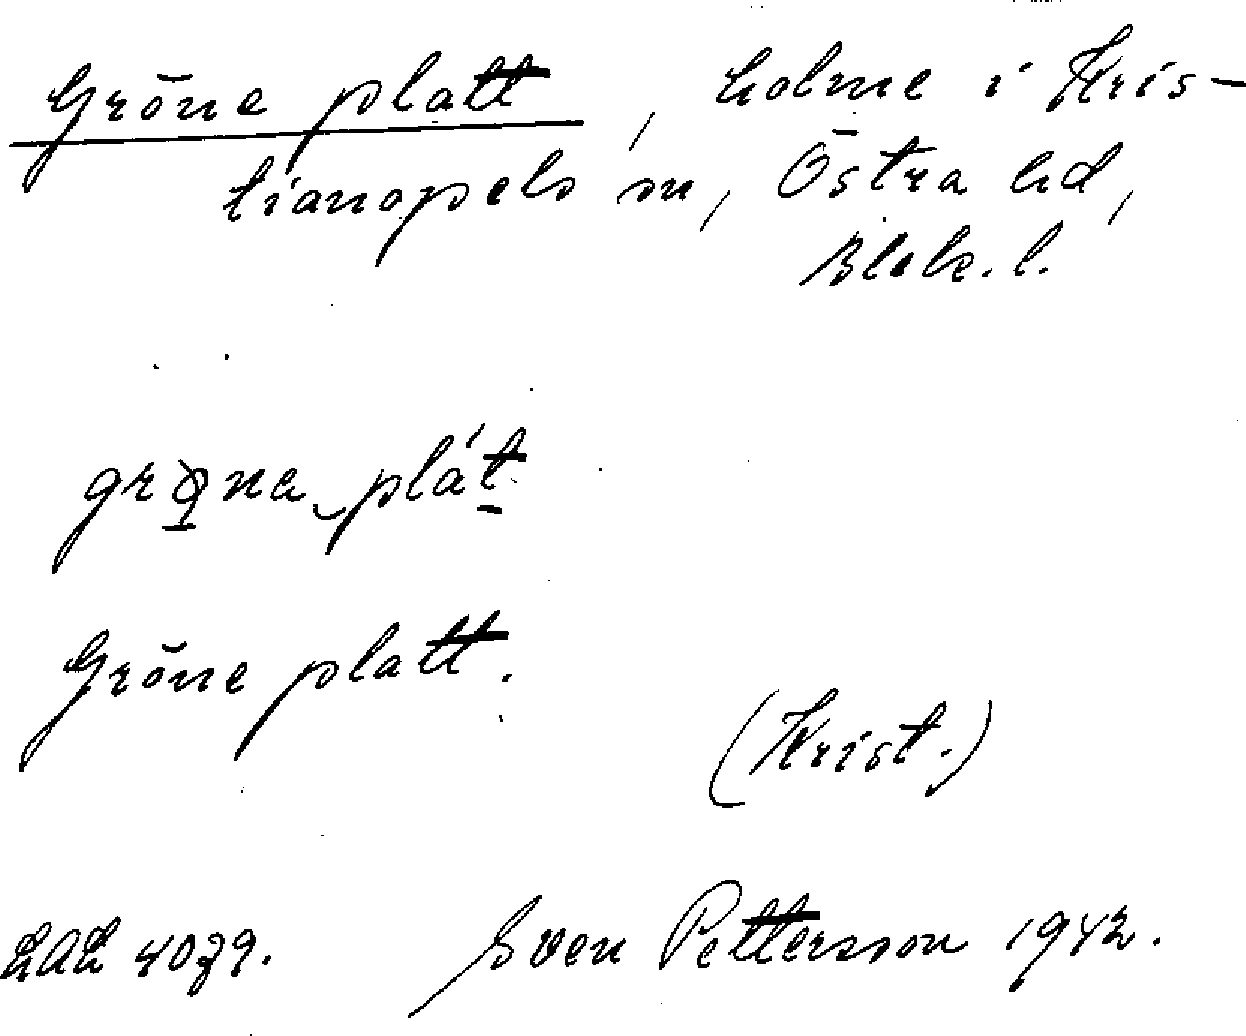 Gröne platt, holme i Kris-
tianopels sn, Östra hd,
Blek. l.
grø̱na‿plát̠
Gröne platt.
(Krist.)
LAL 4079. Sven Pettersson 1942.